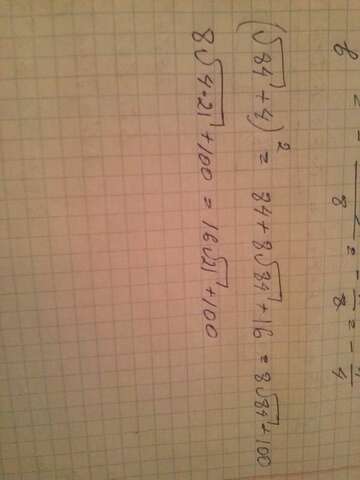 (√84 + 4)² = 84 + 8√84 + 16 = 8√84 + 100
8√4·21 + 100 = 16√21 + 100